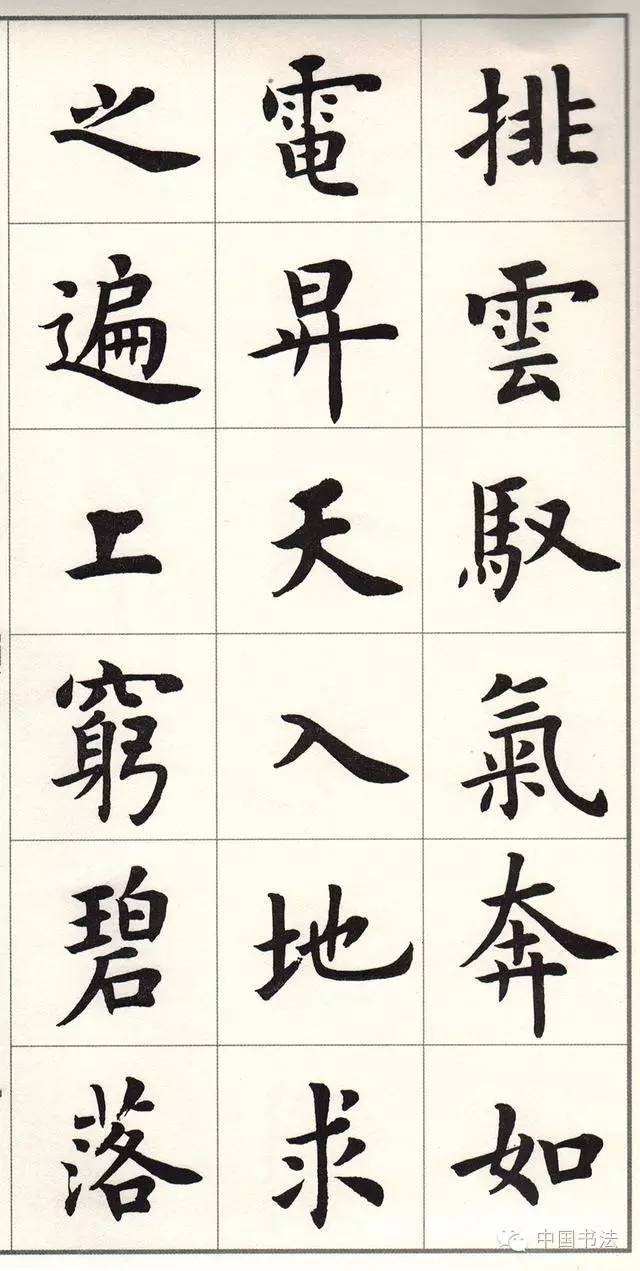 排雲馭氣奔如
電昇天入地求
之遍上窮碧落
中国书法